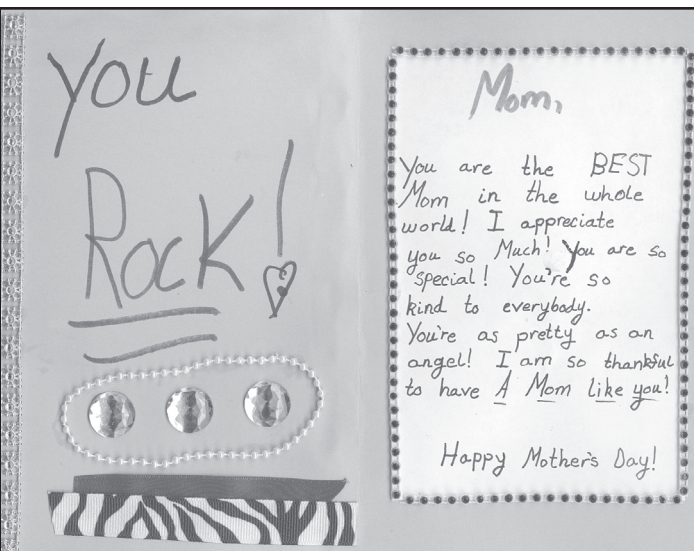 You
Rock!
Mom,
You are the BEST
Mom in the whole
world! I appreciate
you so Much! You are so
special! You're so
kind to everybody.
You're as pretty as an
angel! I am so thankful
to have A Mom like you!
Happy Mother's Day!